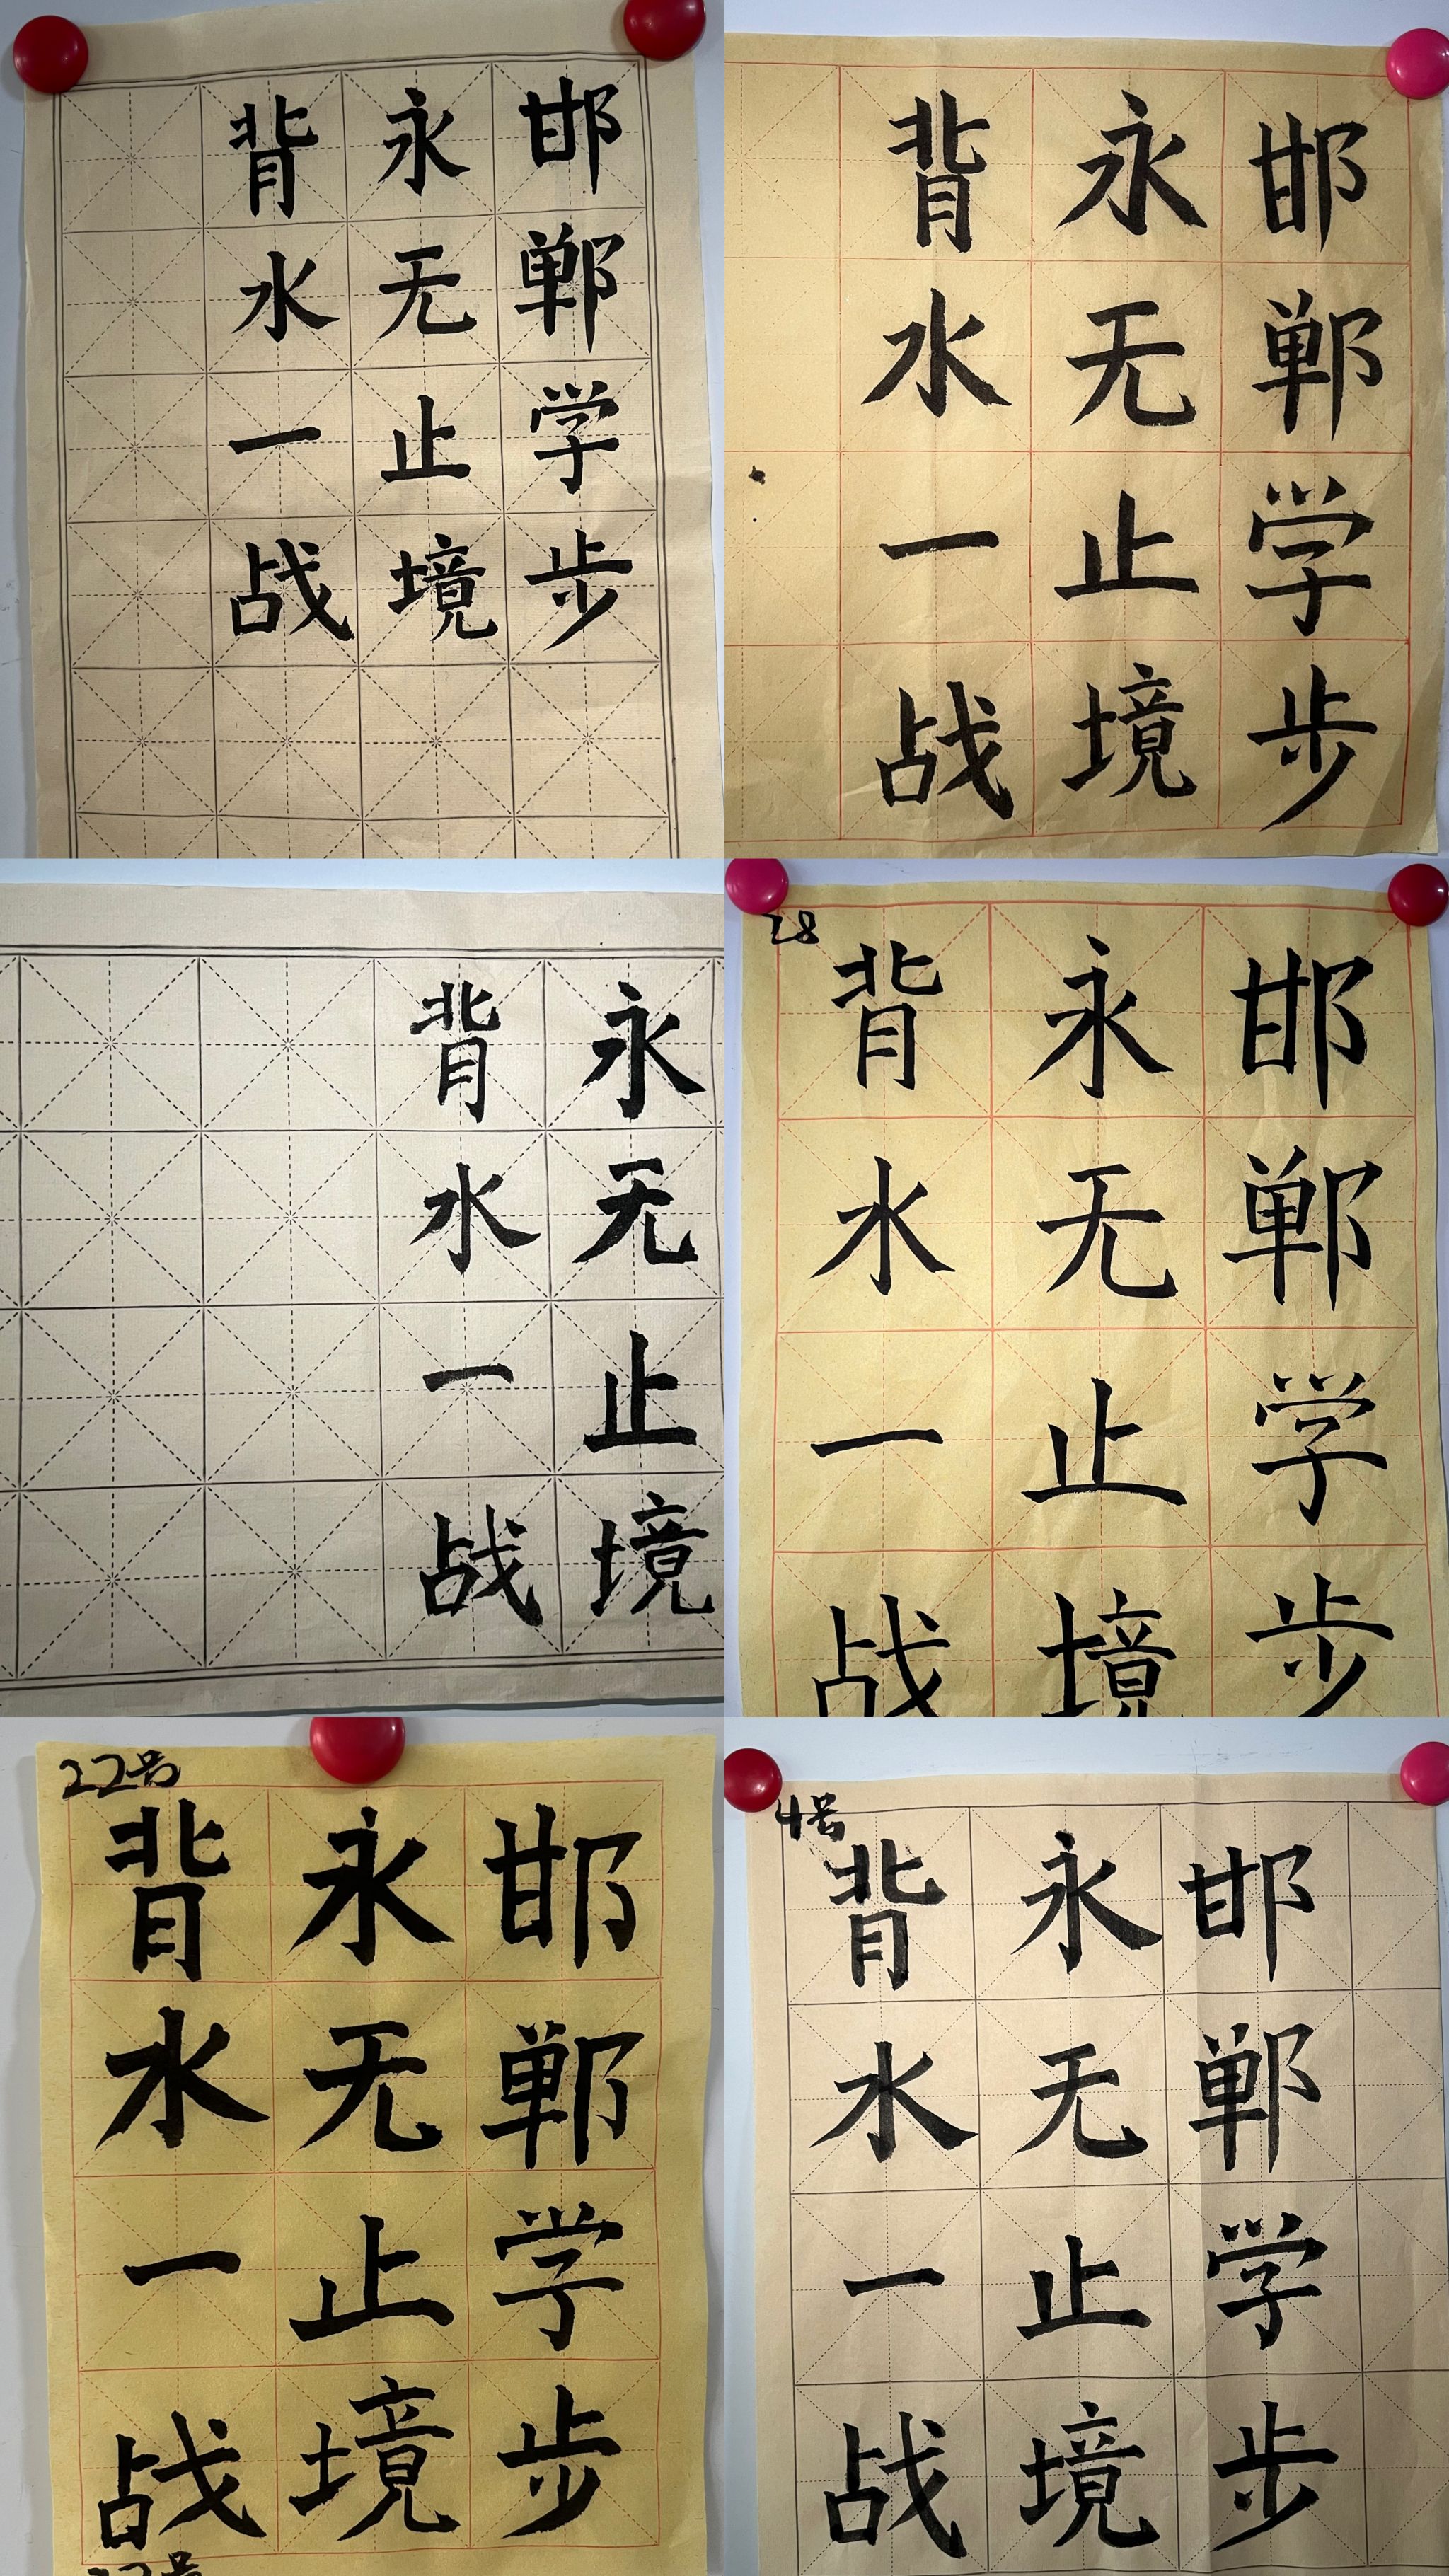 邯郸学步
永无止境
背水一战
邯郸学步
永无止境
背水一战
永无止境
背水一战
28
邯郸学步
永无止境
背水一战
22号
邯郸学步
永无止境
背水一战
4号
邯郸学步
永无止境
背水一战